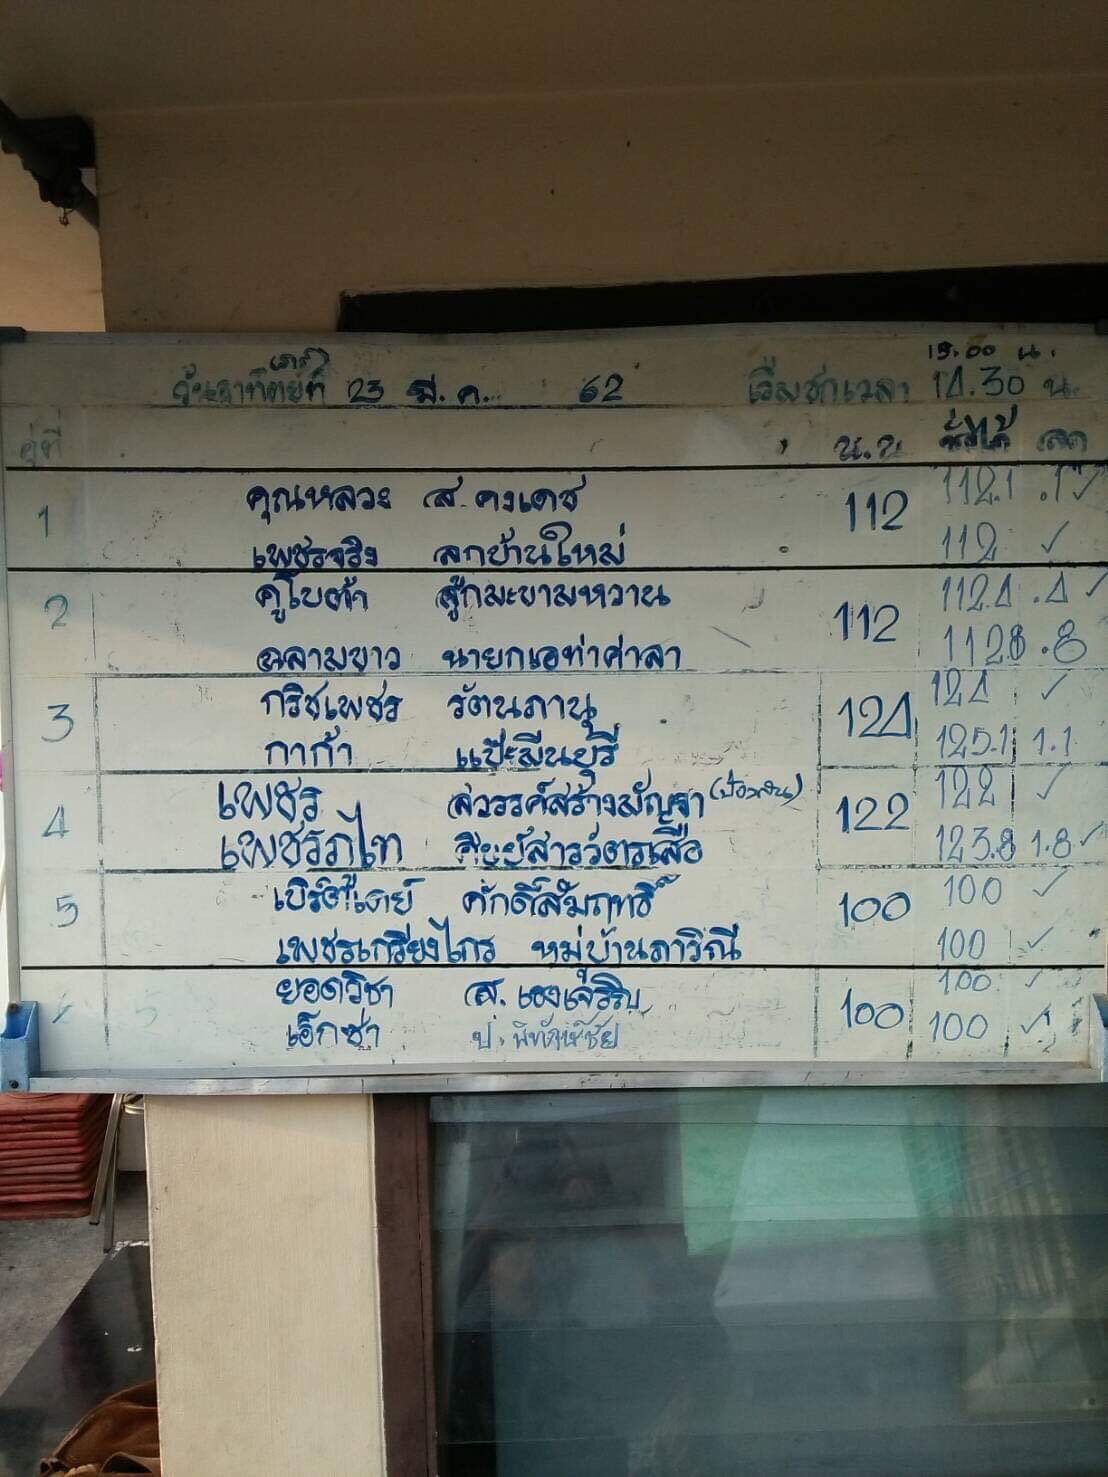 15.00 น.
(เสาร์)
วันอาทิตย์ที่ 23 มี.ค. 62 เริ่มชกเวลา 14.30 น.
คู่ที่ น.น ชั่งได้ ลด
1 คุณหลวง ส.คงเดช 112 112.1 .1 ✓
เพชรจริง ลูกบ้านใหม่ 112 ✓
2 คูโบต้า สู้กมะขามหวาน 112 112.4 .4 ✓
ฉลามขาว นายกเอท่าศาลา 112.8 .8
3 กริชเพชร รัตนภานุ 124 124 ✓
กาก้า แป๊ะมีนบุรี 125.1 1.1
4 เพชร สวรรค์สร้างมัญจา (ป้องกัน) 122 122 ✓
เพชรภูไท ศิษย์สารวัตรเสือ 123.8 1.8 ✓
5 เบิร์ดเดย์ ศักดิ์สัมฤทธิ์ 100 100 ✓
เพชรเกรียงไกร หมู่บ้านภาวิณี 100 ✓
ยอดวิชา ส. เฮงเจริญ 100 100 ✓
เอ็กซ่า ป. พิทักษ์ชัย 100 ✓